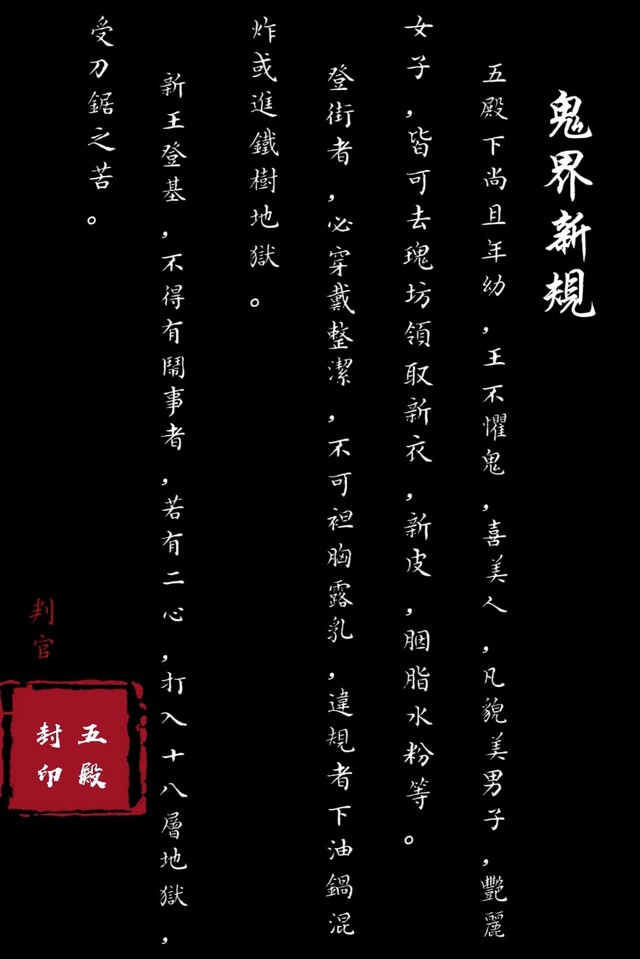 鬼界新規
五殿下尚且年幼,王不懼鬼,喜美人,凡貌美男子,艷麗
女子,皆可去瑰坊領取新衣,新皮,胭脂水粉等。
登街者,必穿戴整潔,不可袒胸露乳,違規者下油鍋混
炸或進鐵樹地獄。
新王登基,不得有鬧事者,若有二心,打入十八層地獄,
受刀鋸之苦。
判官
五殿
封印